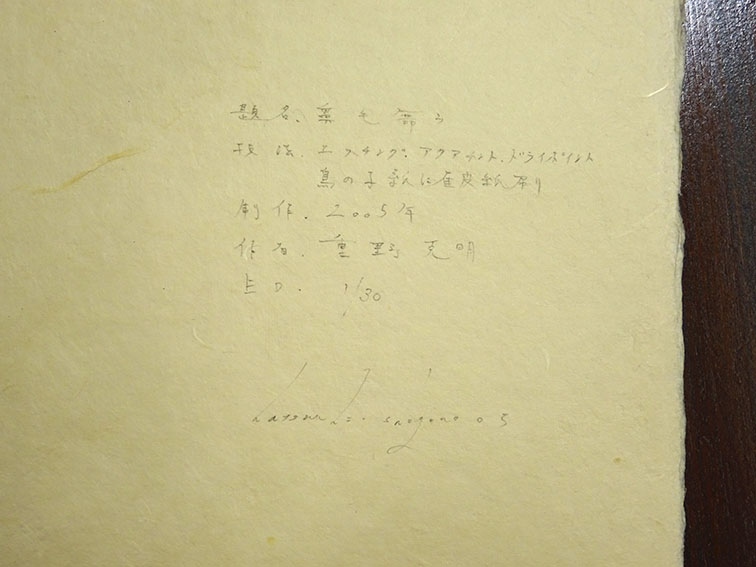 題名. 葉も舞う
技法. エッチング. アクアチント. ドライポイント
鳥の子紙に雁皮紙刷り
制作. 2005年
作者. 重野克明
ED. 1/30
Katsuaki. Shigeno 05